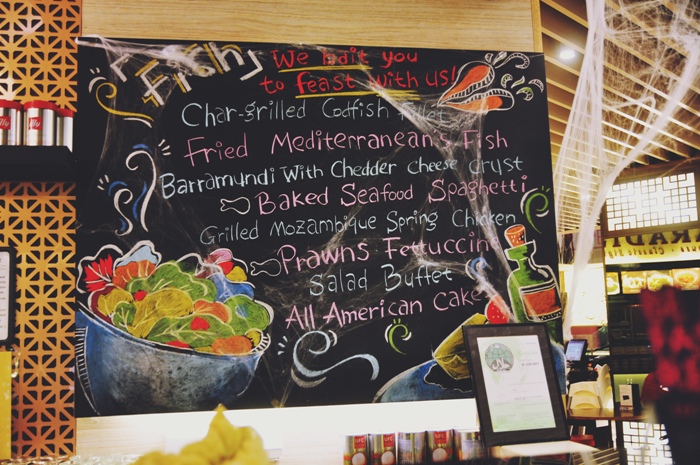 We bait you
to feast with us!
Char-grilled Codfish
Fried Mediterranean's Fish
Barramundi With Chedder cheese crust
Baked Seafood Spaghetti
Grilled Mozambique Spring Chicken
Prawns Fettuccini
Salad Buffet
All American Cake
illy